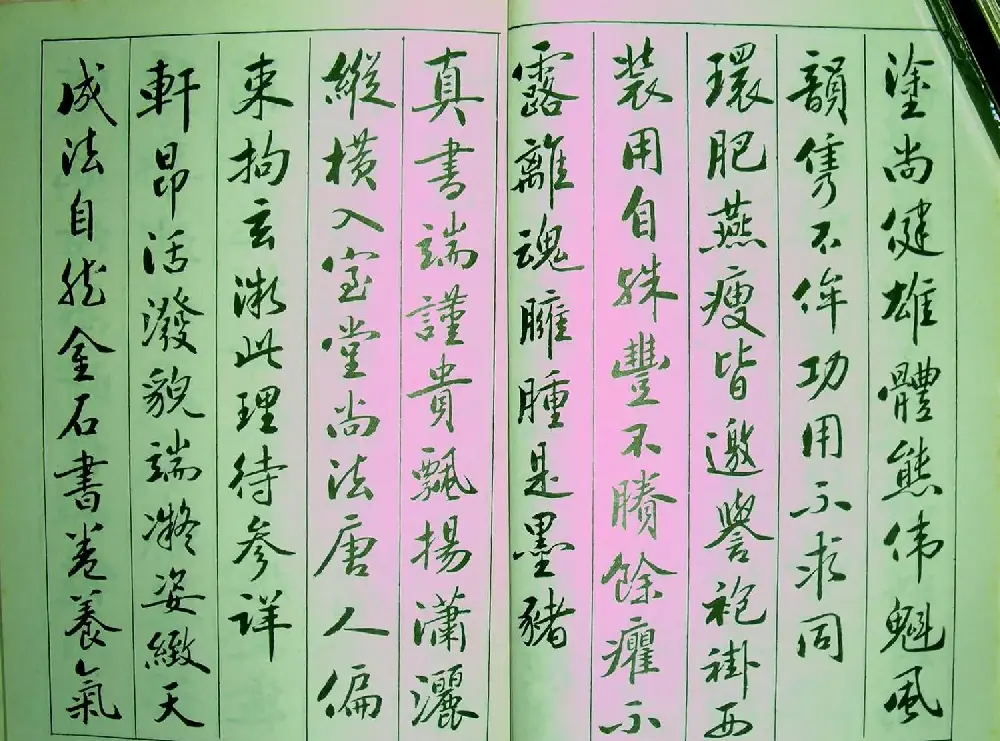 塗尚健雄體熊偉魁風
韻雋不侔功用不求同
環肥燕瘦皆邀譽袍褂西
裝用自殊豐不賸餘癯不
露離魂臃腫是墨豬
真書端謹貴飄揚瀟灑
縱橫入室堂尚法唐人偏
束拘玄微此理待參詳
軒昂活潑貌端凝姿緻天
成法自然金石書卷養氣